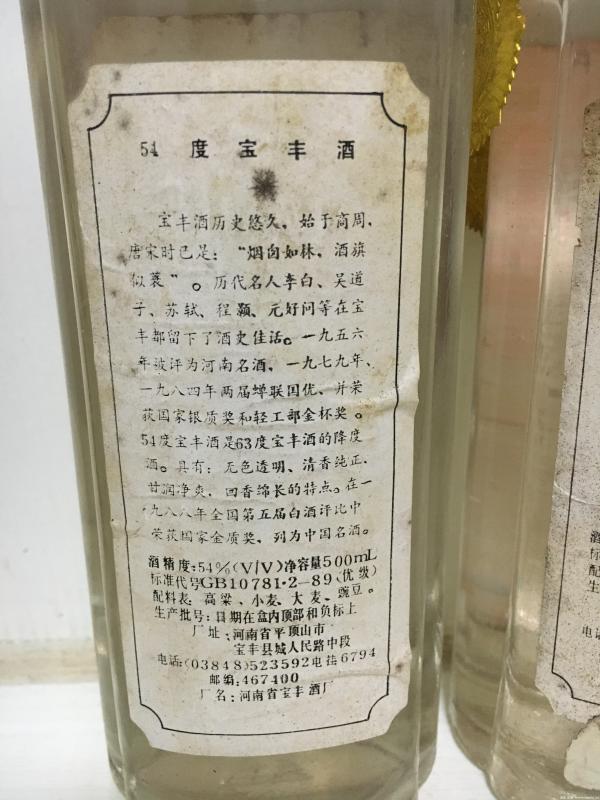 54 度宝丰酒
宝丰酒历史悠久，始于商周，
唐宋时已是：“烟囱如林，酒旗
似蓑”。历代名人李白、吴道
子、苏轼、程颢、元好问等在宝
丰都留下了酒史佳话。一九五六
年被评为河南名酒，一九七九年、
一九八四年两届蝉联国优、并荣
获国家银质奖和轻工部金杯奖。
54度宝丰酒是63度宝丰酒的降度
酒。具有：无色透明、清香纯正、
甘润净爽，回香绵长的特点。在一
九八八年全国第五届白酒评比中
荣获国家金质奖，列为中国名酒。
酒精度：54%(V/V)净容量500mL
标准代号GB10781·2-89(优级)
配料表：高粱、小麦、大麦、豌豆。
生产批号：日期在盒内顶部和负标上
厂址：河南省平顶山市
宝丰县城人民路中段
电话：(03848)523592电挂6794
邮编：467400
厂名：河南省宝丰酒厂